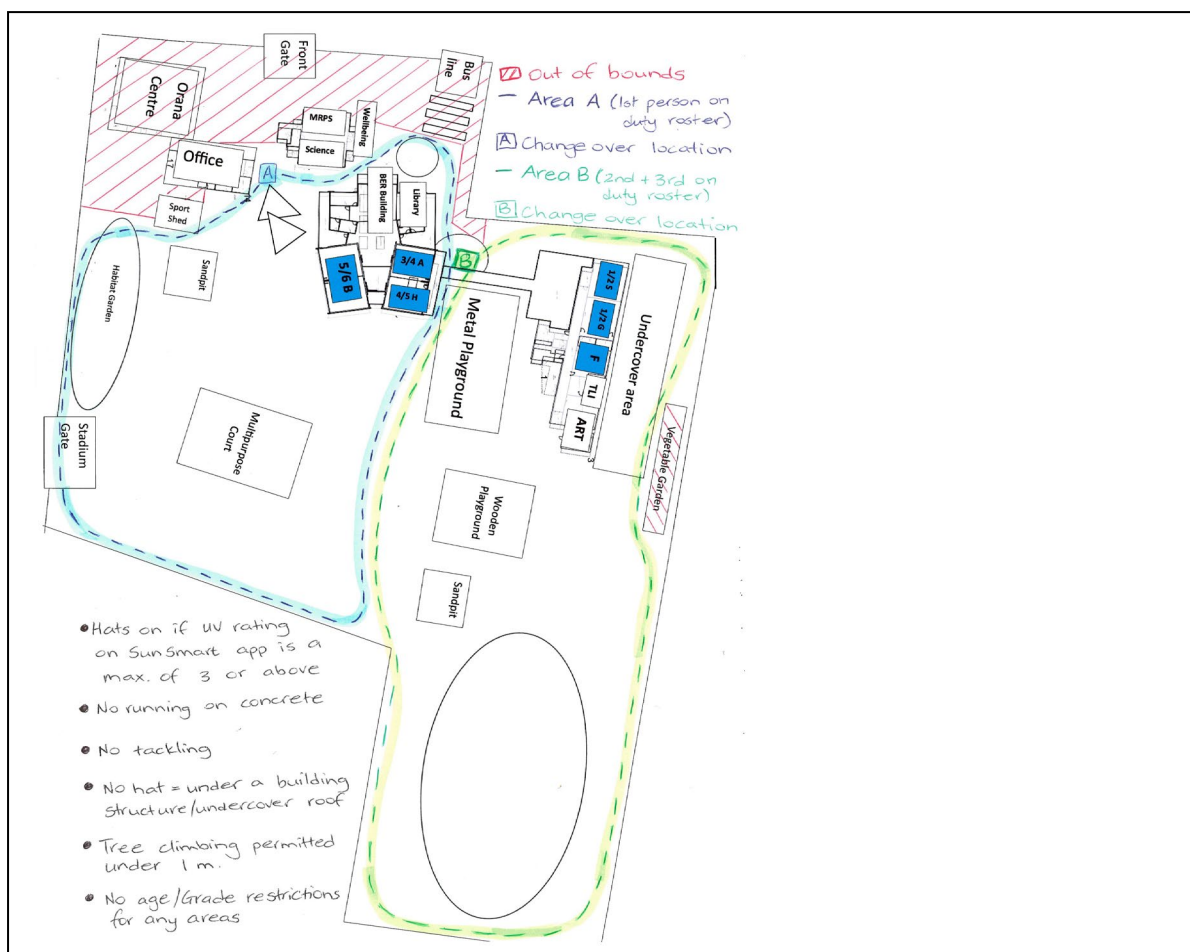 Front
Gate
Bus
line
Orana
Centre
MRPS
Wellbeing
Science
Office
A
Sport
Shed
BER Building
Library
Habitat Garden
Sandpit
5/6 B
3/4 A
4/5 H
B
Metal Playground
1/2 S
1/2 G
F
TLI
ART
Undercover area
Vegetable Garden
Stadium
Gate
Multipurpose
Court
Wooden
Playground
Sandpit
Out of bounds
- Area A (1st person on
duty roster)
A Change over location
- Area B (2nd + 3rd on
duty roster)
B Change over location
• Hats on if UV rating
on SunSmart app is a
max. of 3 or above
• No running on concrete
• No tackling
• No hat = under a building
structure/undercover roof
• Tree climbing permitted
under 1 m.
• No age/Grade restrictions
for any areas